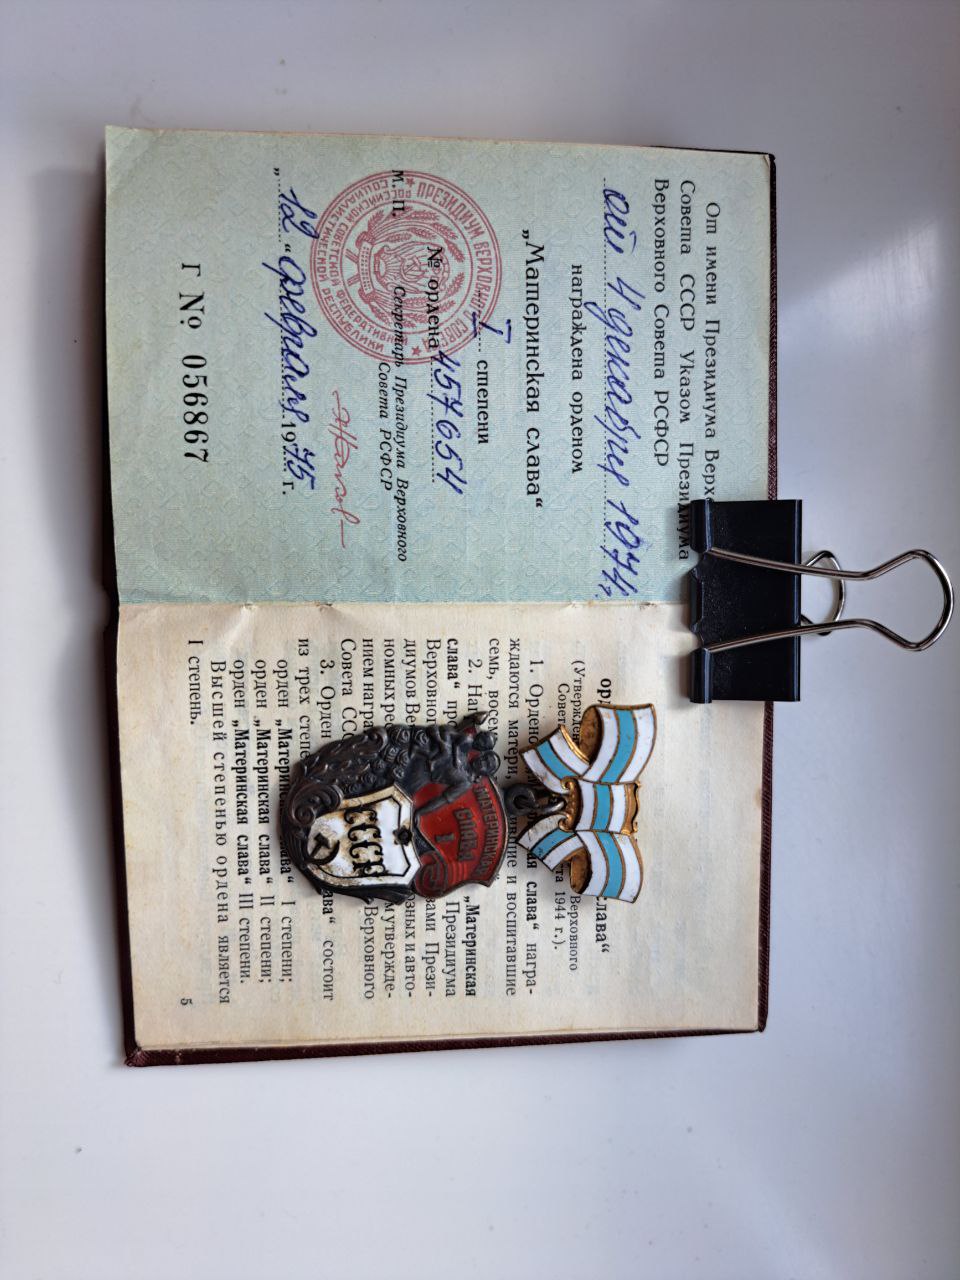 От имени Президиума Верх
Совета СССР Указом Президиума
Верховного Совета РСФСР
от 4 декабря 1974 г.
награждена орденом
„Материнская слава“
I степени
№ ордена 457654
Секретарь Президиума Верховного
Совета РСФСР
М. П.
ПРЕЗИДИУМ ВЕРХОВНОГО СОВЕТА
РОССИЙСКОЙ СОВЕТСКОЙ ФЕДЕРАТИВНОЙ
СОЦИАЛИСТИЧЕСКОЙ РЕСПУБЛИКИ
„12“ февраля 1975 г.
Г № 056867
слава“
(Утвержден Верховного
Совет та 1944 г.).
1. Орденом слава“ награ-
ждаются матери, родившие и воспитавшие
семь, восемь
2. Наг „Материнская
слава“ про Президиума
Верховног зами Прези-
диумов Вер юзных и авто-
номных рес м утвержде-
нием награ
Совета ССС Верховного
3. Орден ава“ состоит
из трёх степе
орден „Материнская слава“ I степени;
орден „Материнская слава“ II степени;
орден „Материнская слава“ III степени.
Высшей степенью ордена является
I степень.
5
МАТЕРИНСКАЯ
СЛАВА
I
СССР